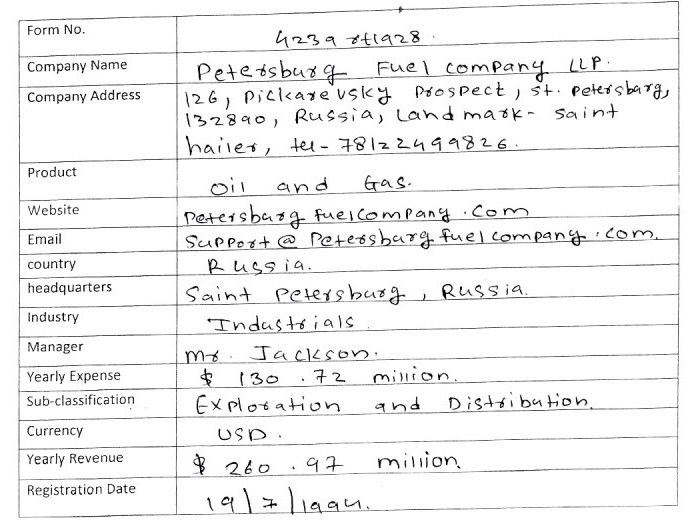 Form No. 4239rt1928.
Company Name Petersburg Fuel company LLP.
Company Address 126, Pickarevsky Prospect, st. Petersburg,
132890, Russia, Landmark- Saint
hailer, tel- 78122499826.
Product Oil and Gas.
Website Petersburgfuelcompany.com
Email Support@Petersburgfuelcompany.com.
country Russia.
headquarters Saint Petersburg, Russia.
Industry Industrials.
Manager Mr. Jackson.
Yearly Expense $ 130.72 million.
Sub-classification Exploration and Distribution.
Currency USD.
Yearly Revenue $ 260.97 million.
Registration Date 19/7/1994.